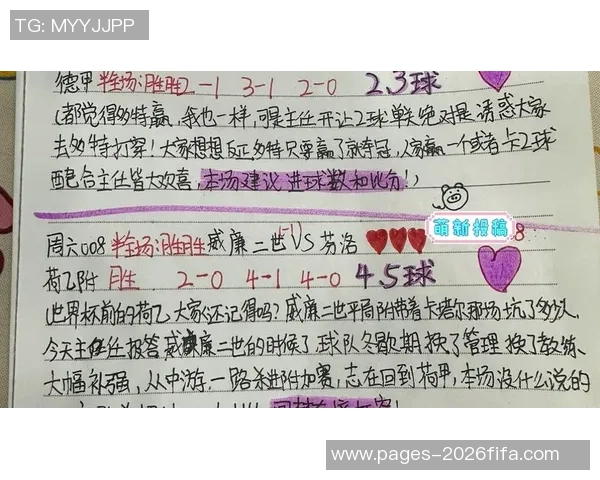 TG: MYYJJPP
德甲 半全场:胜胜 2-1 3-1 2-0 2.3球
(都觉得多特赢,我也一样,可是主任开让2球单关绝对是诱惑大家
去多特打穿!大家想想反正多特只要赢了就夺冠,人家赢一个或者卡2球
配合主任皆大欢喜,本场建议进球数和比分!)
萌新投稿
8
周六008 半全场:胜胜 威廉二世-1VS芬洛
荷乙附 胜 2-0 4-1 4-0 4.5球
(世界杯前的荷乙大家还记得吗?威廉二世平局附带着卡塔尔那场坑了多少,
今天主任报答威廉二世的时候了球队冬歇期换了管理换了教练
大幅补强,从中游一路杀进附加赛,志在回到荷甲,本场没什么说的
www.pages-2026fifa.com